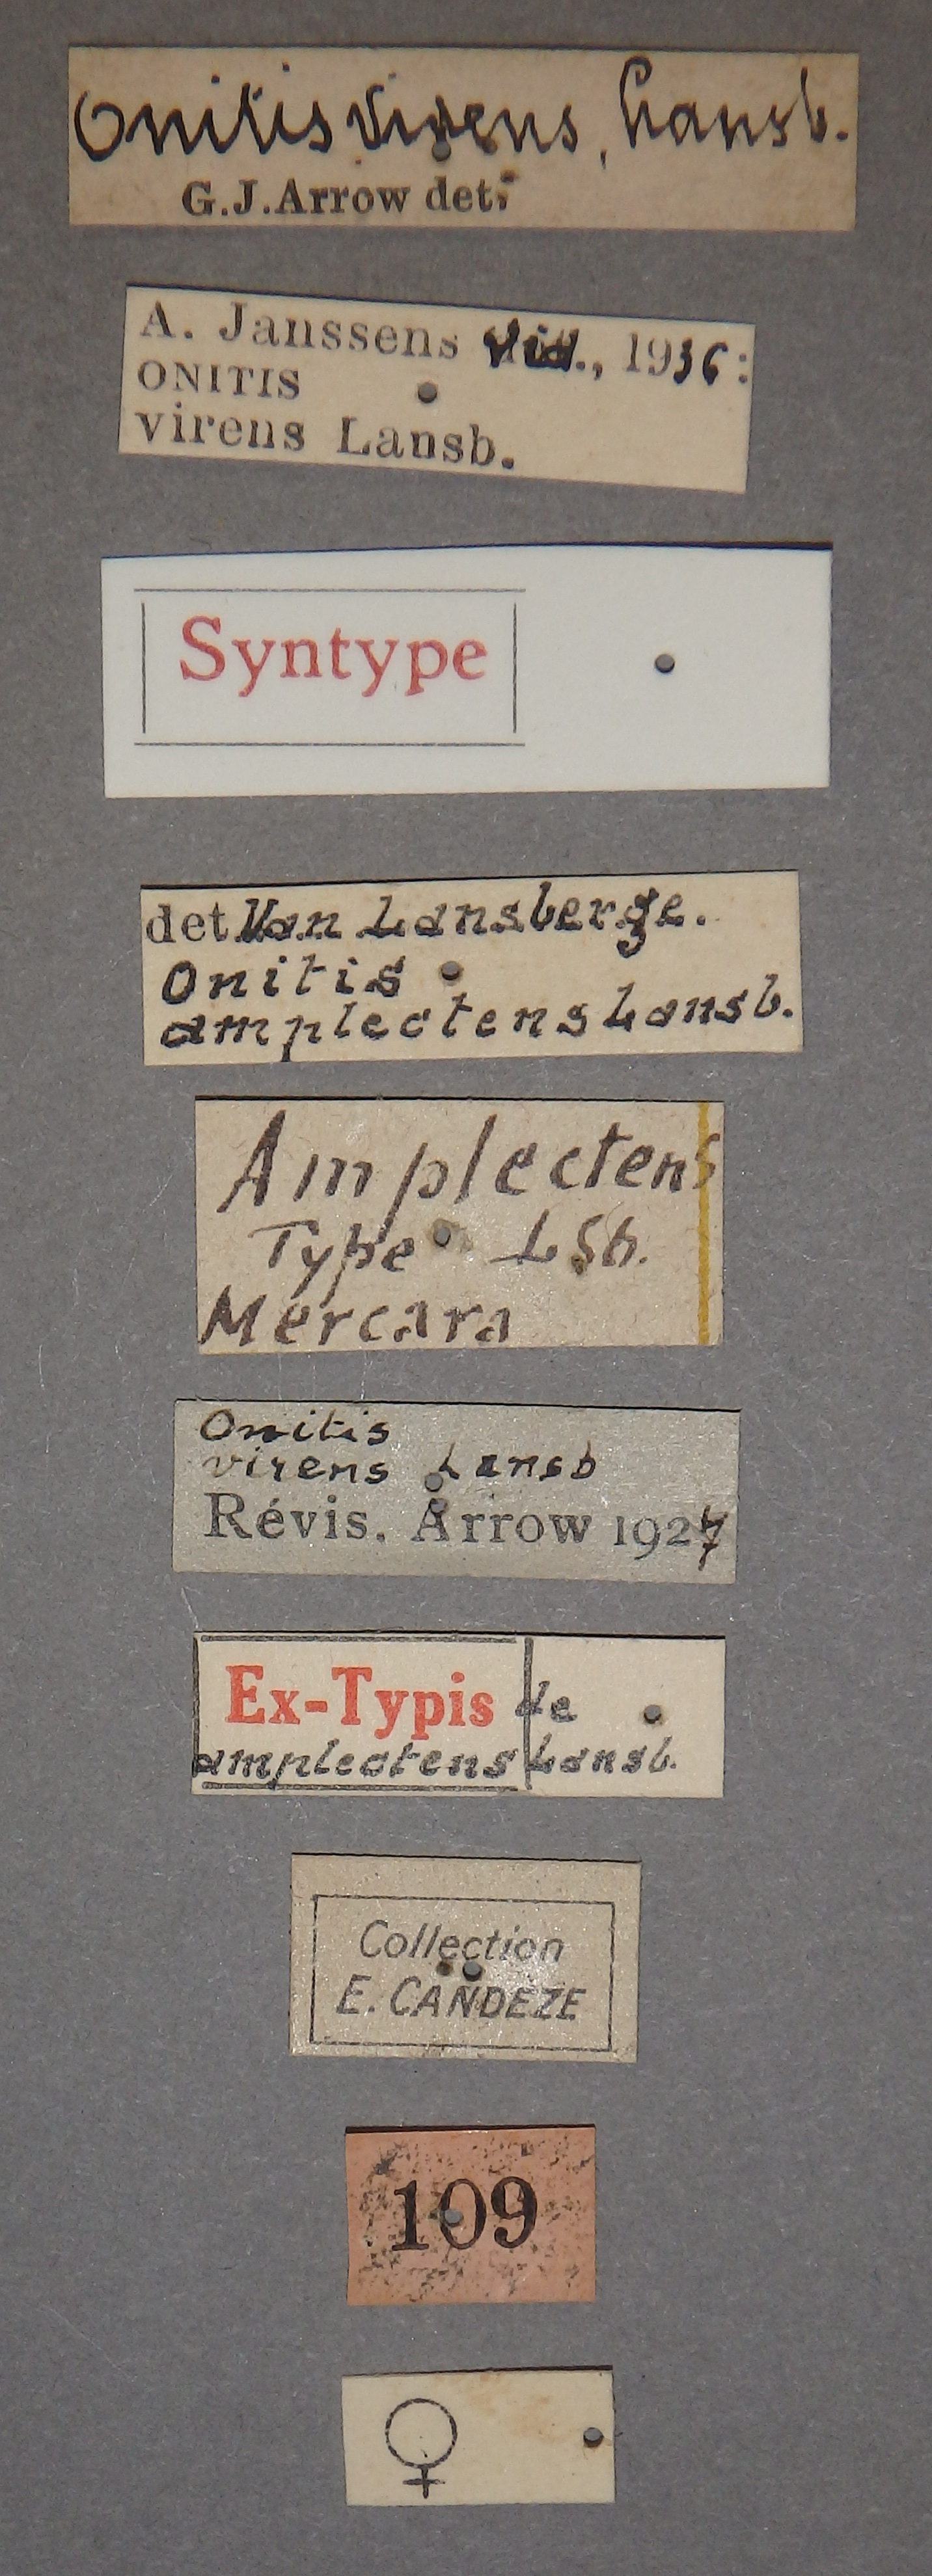 Onitis virens, Lansb.
G.J.Arrow det.
A. Janssens vid., 1936:
ONITIS
virens Lansb.
Syntype
det Van Lansberge.
Onitis
amplectens Lansb.
Amplectens
Type Lsb.
Mercara
Onitis
virens Lansb
Révis. Arrow 1927
Ex-Typis de
amplectens Lansb.
Collection
E. CANDEZE
109
♀